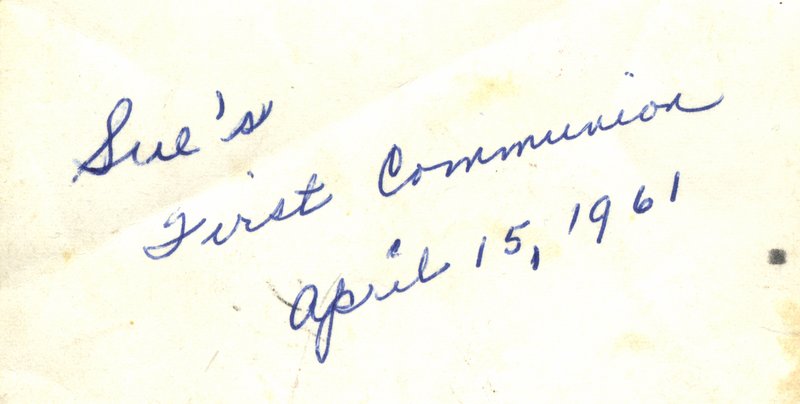 Sue's
First Communion
April 15, 1961